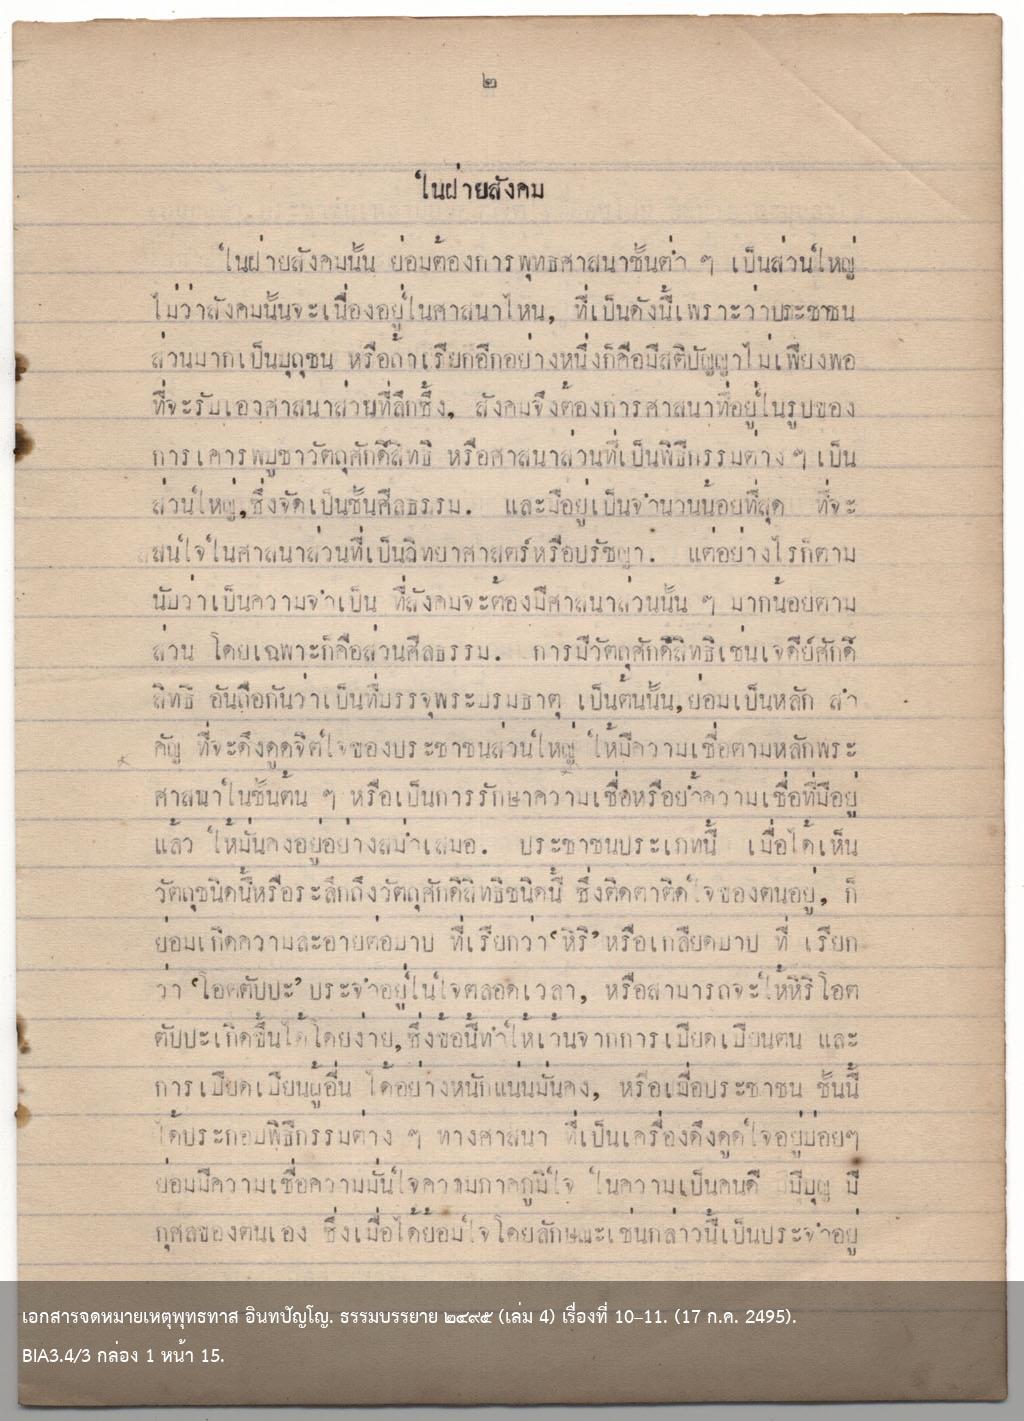 ๒
ในฝ่ายสังคม
ในฝ่ายสังคมนั้น ย่อมต้องการพุทธศาสนาชั้นต่ำ ๆ เป็นส่วนใหญ่
ไม่ว่าสังคมนั้นจะเนื่องอยู่ในศาสนาไหน, ที่เป็นดังนี้เพราะว่าประชาชน
ส่วนมากเป็นบุถุชน หรือถ้าเรียกอีกอย่างหนึ่งก็คือมีสติปัญญาไม่เพียงพอ
ที่จะรับเอาศาสนาส่วนที่ลึกซึ้ง, สังคมจึงต้องการศาสนาที่อยู่ในรูปของ
การเคารพบูชาวัตถุศักดิ์สิทธิ หรือศาสนาส่วนที่เป็นพิธีกรรมต่าง ๆ เป็น
ส่วนใหญ่,ซึ่งจัดเป็นชั้นศีลธรรม. และมีอยู่เป็นจำนวนน้อยที่สุด ที่จะ
สนใจในศาสนาส่วนที่เป็นวิทยาศาสตร์หรือปรัชญา. แต่อย่างไรก็ตาม
นับว่าเป็นความจำเป็น ที่สังคมจะต้องมีศาสนาส่วนนั้น ๆ มากน้อยตาม
ส่วน โดยเฉพาะก็คือส่วนศีลธรรม. การมีวัตถุศักดิ์สิทธิเช่นเจดีย์ศักดิ์
สิทธิ อันถือกันว่าเป็นที่บรรจุพระบรมธาตุ เป็นต้นนั้น,ย่อมเป็นหลัก สำ
คัญ ที่จะดึงดูดจิตใจของประชาชนส่วนใหญ่ ให้มีความเชื่อตามหลักพระ
ศาสนาในชั้นต้น ๆ หรือเป็นการรักษาความเชื่อหรือย้ำความเชื่อที่มีอยู่
แล้ว ให้มั่นคงอยู่อย่างสม่ำเสมอ. ประชาชนประเภทนี้ เมื่อได้เห็น
วัตถุชนิดนี้หรือระลึกถึงวัตถุศักดิ์สิทธิชนิดนี้ ซึ่งติดตาติดใจของตนอยู่, ก็
ย่อมเกิดความละอายต่อบาป ที่เรียกว่า‘หิริ’หรือเกลียดบาป ที่ เรียก
ว่า ‘โอตตัปปะ’ ประจำอยู่ในใจตลอดเวลา, หรือสามารถจะให้หิริโอต
ตัปปะเกิดขึ้นได้โดยง่าย,ซึ่งข้อนี้ทำให้เว้นจากการเบียดเบียนตน และ
การเบียดเบียนผู้อื่น ได้อย่างหนักแน่นมั่นคง, หรือเมื่อประชาชน ชั้นนี้
ได้ประกอบพิธีกรรมต่าง ๆ ทางศาสนา ที่เป็นเครื่องดึงดูดใจอยู่บ่อยๆ
ย่อมมีความเชื่อความมั่นใจความภาคภูมิใจ ในความเป็นคนดี มีบุญ มี
กุศลของตนเอง ซึ่งเมื่อได้ย้อมใจโดยลักษณะเช่นกล่าวนี้เป็นประจำอยู่
เอกสารจดหมายเหตุพุทธทาส อินทปัญโญ. ธรรมบรรยาย ๒๔๙๕ (เล่ม 4) เรื่องที่ 10–11. (17 ก.ค. 2495).
BIA3.4/3 กล่อง 1 หน้า 15.